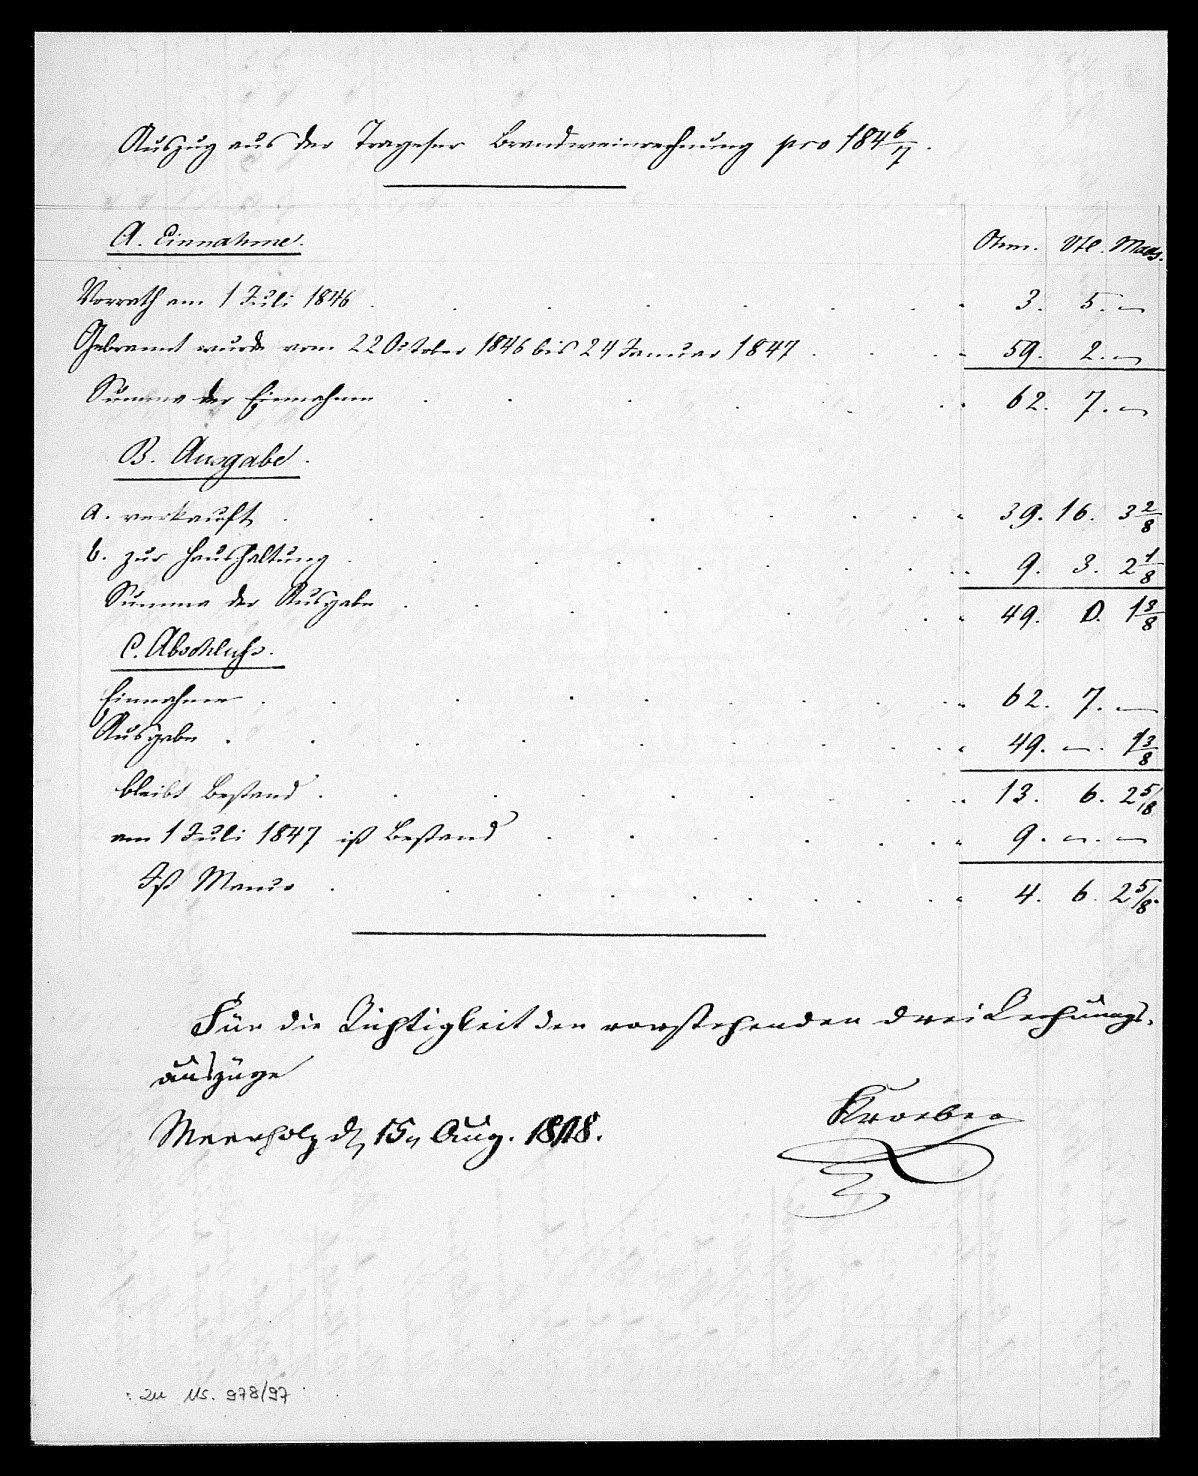 Auszug aus der Trageser Brandweinrechnung pro 184 6/7.
A. Einnahme. Ohm. Vtl. Maas.
Vorrath am 1 Juli 1846 . . . 3. 5. —
Gebrannt wurde vom 22 October 1846 bis 24 Januar 1847 . . . 59. 2. —
Summe der Einnahme . . . 62. 7. —
B. Ausgabe.
a. verkauft . . . 39. 16. 3 2/8
b. zur Haushaltung . . . 9. 3. 2 1/8
Summa der Ausgabe . . . 49. 0. 1 3/8
C. Abschluß.
Einnahme . . . 62. 7. —
Ausgabe . . . 49. —. 1 3/8
bleibt Bestand . . . 13. 6. 2 5/8
am 1 Juli 1847 ist Bestand . . . 9. —. —
Ist Manco . . . 4. 6. 2 5/8.
Für die Richtigkeit der vorstehenden drei Rechnungs-
auszüge
Meerholz d. 15n Aug. 1848.
Kroeber
zu Ms. 978/97